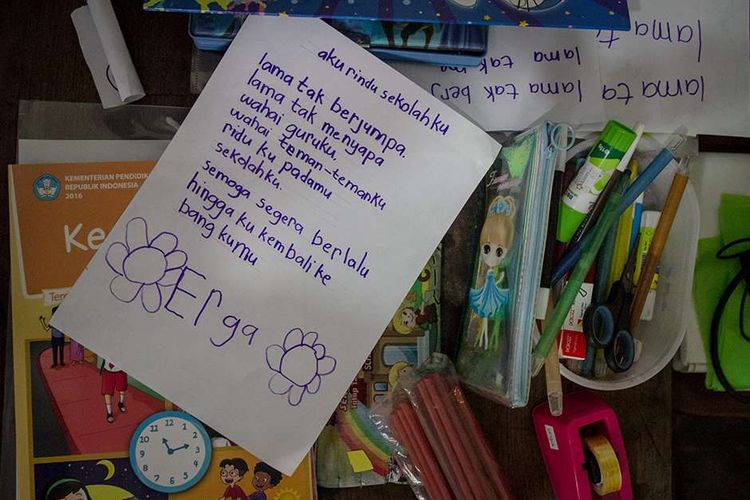 aku rindu sekolahku
lama tak berjumpa.
lama tak menyapa
wahai guruku,
wahai teman-temanku
ridu ku padamu
sekolahku.
semoga segera berlalu
hingga ku kembali ke
bang kumu
Erga
KEMENTERIAN PENDIDIK
REPUBLIK INDONESIA
2016
Ke
Ter
lama ta
lama tak
lama tak berj
lama